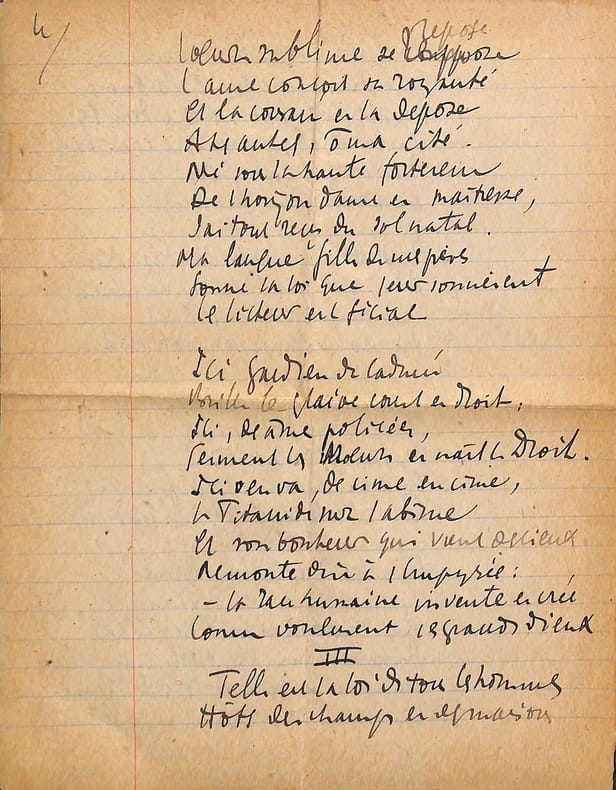 4/
L'œuvre sublime se repose
L'ame conçoit sa royauté
Et la
A tes autels, ô ma cité.
Né sous la haute forteresse
De l'horizon dame et maitresse,
J'ai tout reçu du sol natal.
Ma langue fille de mes pères
Sonne la loi que leur
Le licteur est filial

Ici gardien de la
le glaive court et droit,
Ici, de âme policée,
Ferment les Mœurs et nait le Droit.
Ici en va, de cime en cime,
la Titanide sur l'abime
Et son bonheur qui vient des cieux
Remonte à l'empyrée :
- la race humaine invente et crée
Comme voulurent les grands dieux
III
Telle est la loi de tous les hommes
Hôtes des champs et des maisons